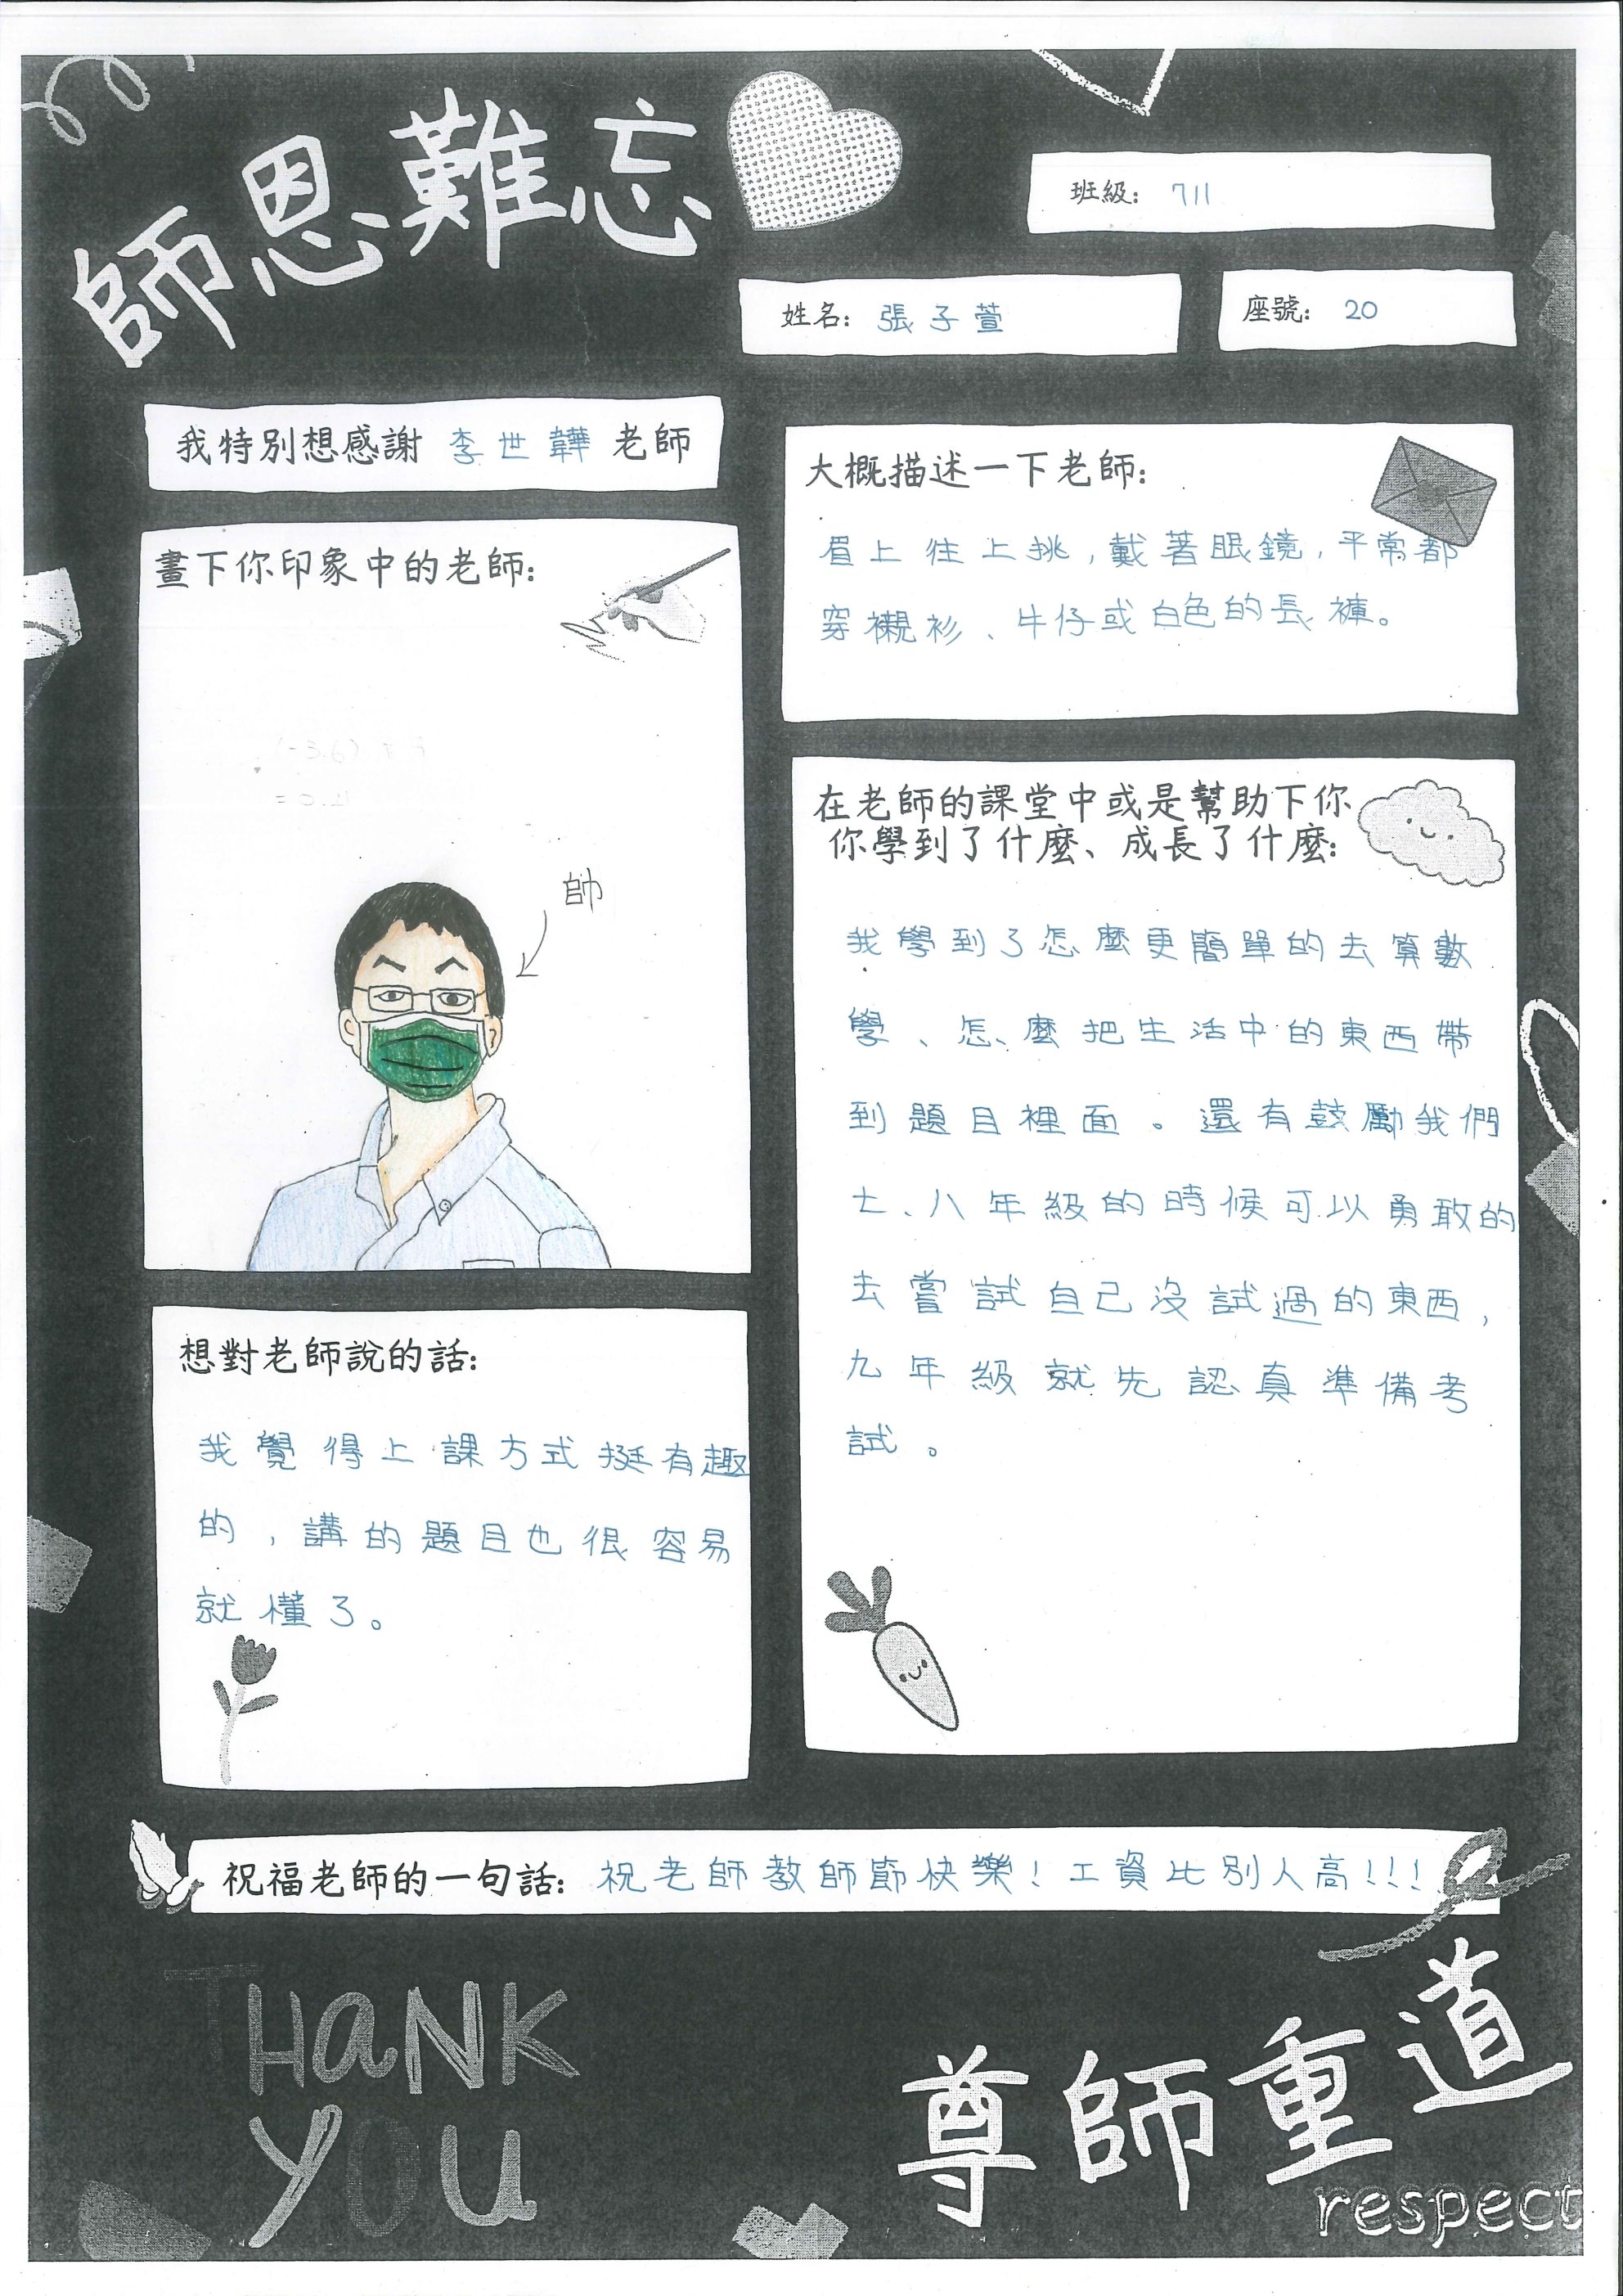 師恩難忘
班級：711
姓名：張子萱
座號：20
我特別想感謝 李世韡 老師
大概描述一下老師：
眉上往上挑，戴著眼鏡，平常都
穿襯衫、牛仔或白色的長褲。
畫下你印象中的老師：
帥
在老師的課堂中或是幫助下你
你學到了什麼、成長了什麼：
我學到了怎麼更簡單的去算數
學、怎麼把生活中的東西帶
到題目裡面。還有鼓勵我們
七、八年級的時候可以勇敢的
去嘗試自己沒試過的東西，
九年級就先認真準備考
試。
想對老師說的話：
我覺得上課方式挺有趣
的，講的題目也很容易
就懂了。
祝福老師的一句話：祝老師教師節快樂！工資比別人高!!!
THANK
YOU
尊師重道
respect